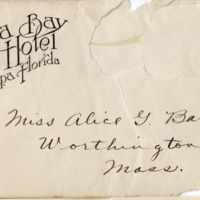 a Bay
Hotel
pa, Florida
Miss Alice G. Ba
Worthington
Mass.